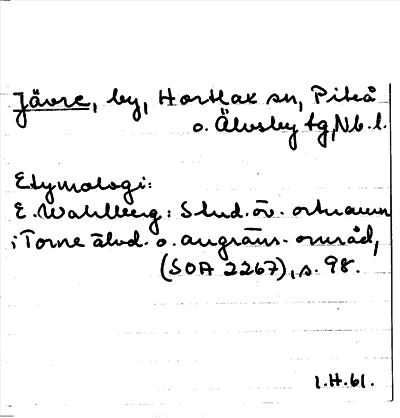 Jävre, by, Hortlax sn, Piteå
o. Älvsby tg, Nb. l.
Etymologi:
E. Wahlberg: Stud. öv. ortnamn
i Torne älvd. o. angräns. områd,
(SOA 2267), s. 98.
1.H.61.